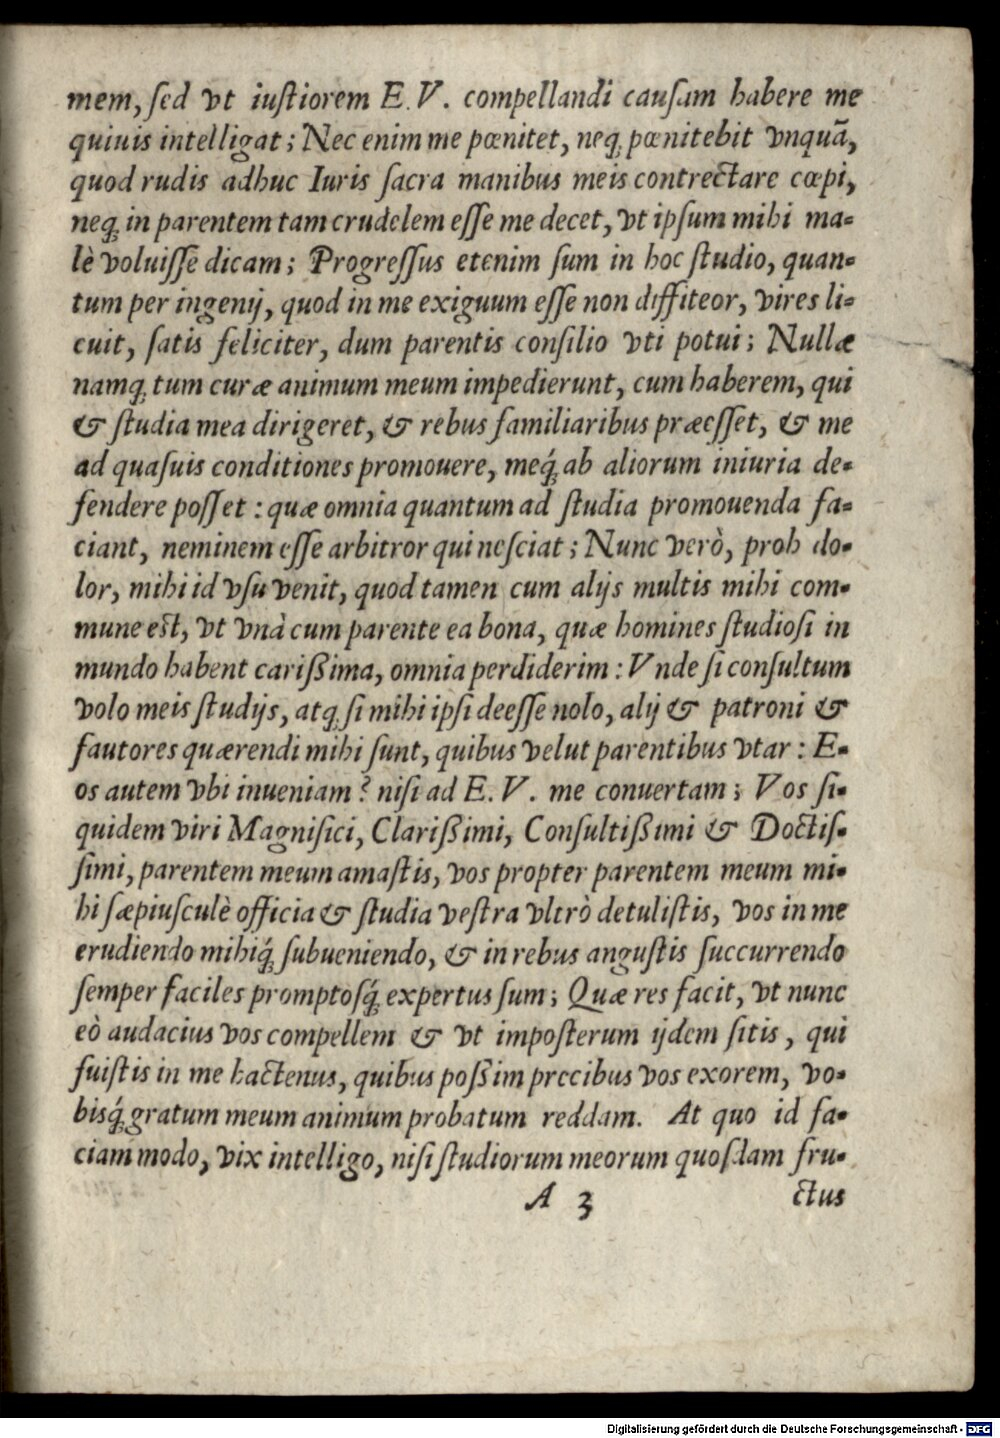 mem, ſed vt iuſtiorem E. V. compellandi cauſam habere me
quiuis intelligat; Nec enim me pœnitet, neq; pœnitebit vnquã,
quod rudis adhuc Iuris ſacra manibus meis contrectare cœpi,
neq; in parentem tam crudelem eſſe me decet, vt ipſum mihi ma-
lè voluiſſe dicam; Progreſſus etenim ſum in hoc ſtudio, quan-
tum per ingenij, quod in me exiguum eſſe non diffiteor, vires li-
cuit, ſatis feliciter, dum parentis conſilio vti potui; Nullæ
namq; tum curæ animum meum impedierunt, cum haberem, qui
& ſtudia mea dirigeret, & rebus familiaribus præeſſet, & me
ad quaſuis conditiones promouere, meq́; ab aliorum iniuria de-
fendere poſſet: quæ omnia quantum ad ſtudia promouenda fa-
ciant, neminem eſſe arbitror qui neſciat; Nunc verò, proh do-
lor, mihi id vſu venit, quod tamen cum alijs multis mihi com-
mune eſt, vt vnà cum parente ea bona, quæ homines ſtudioſi in
mundo habent carißima, omnia perdiderim: Vnde ſi conſultum
volo meis ſtudijs, atq; ſi mihi ipſi deeſſe nolo, alij & patroni &
fautores quærendi mihi ſunt, quibus velut parentibus vtar: E-
os autem vbi inueniam? niſi ad E. V. me conuertam; Vos ſi-
quidem viri Magnifici, Clarißimi, Conſultißimi & Doctiſ-
ſimi, parentem meum amaſtis, vos propter parentem meum mi-
hi ſæpiuſculè officia & ſtudia veſtra vltrò detuliſtis, vos in me
erudiendo mihiq́; ſubueniendo, & in rebus anguſtis ſuccurrendo
ſemper faciles promptoſq́; expertus ſum; Quæ res facit, vt nunc
eò audacius vos compellem & vt impoſterum ijdem ſitis, qui
fuiſtis in me hactenus, quibus poßim precibus vos exorem, vo-
bisq́; gratum meum animum probatum reddam. At quo id fa-
ciam modo, vix intelligo, niſi ſtudiorum meorum quoſdam fru-
A 3 ctus
Digitalisierung gefördert durch die Deutsche Forschungsgemeinschaft - DFG